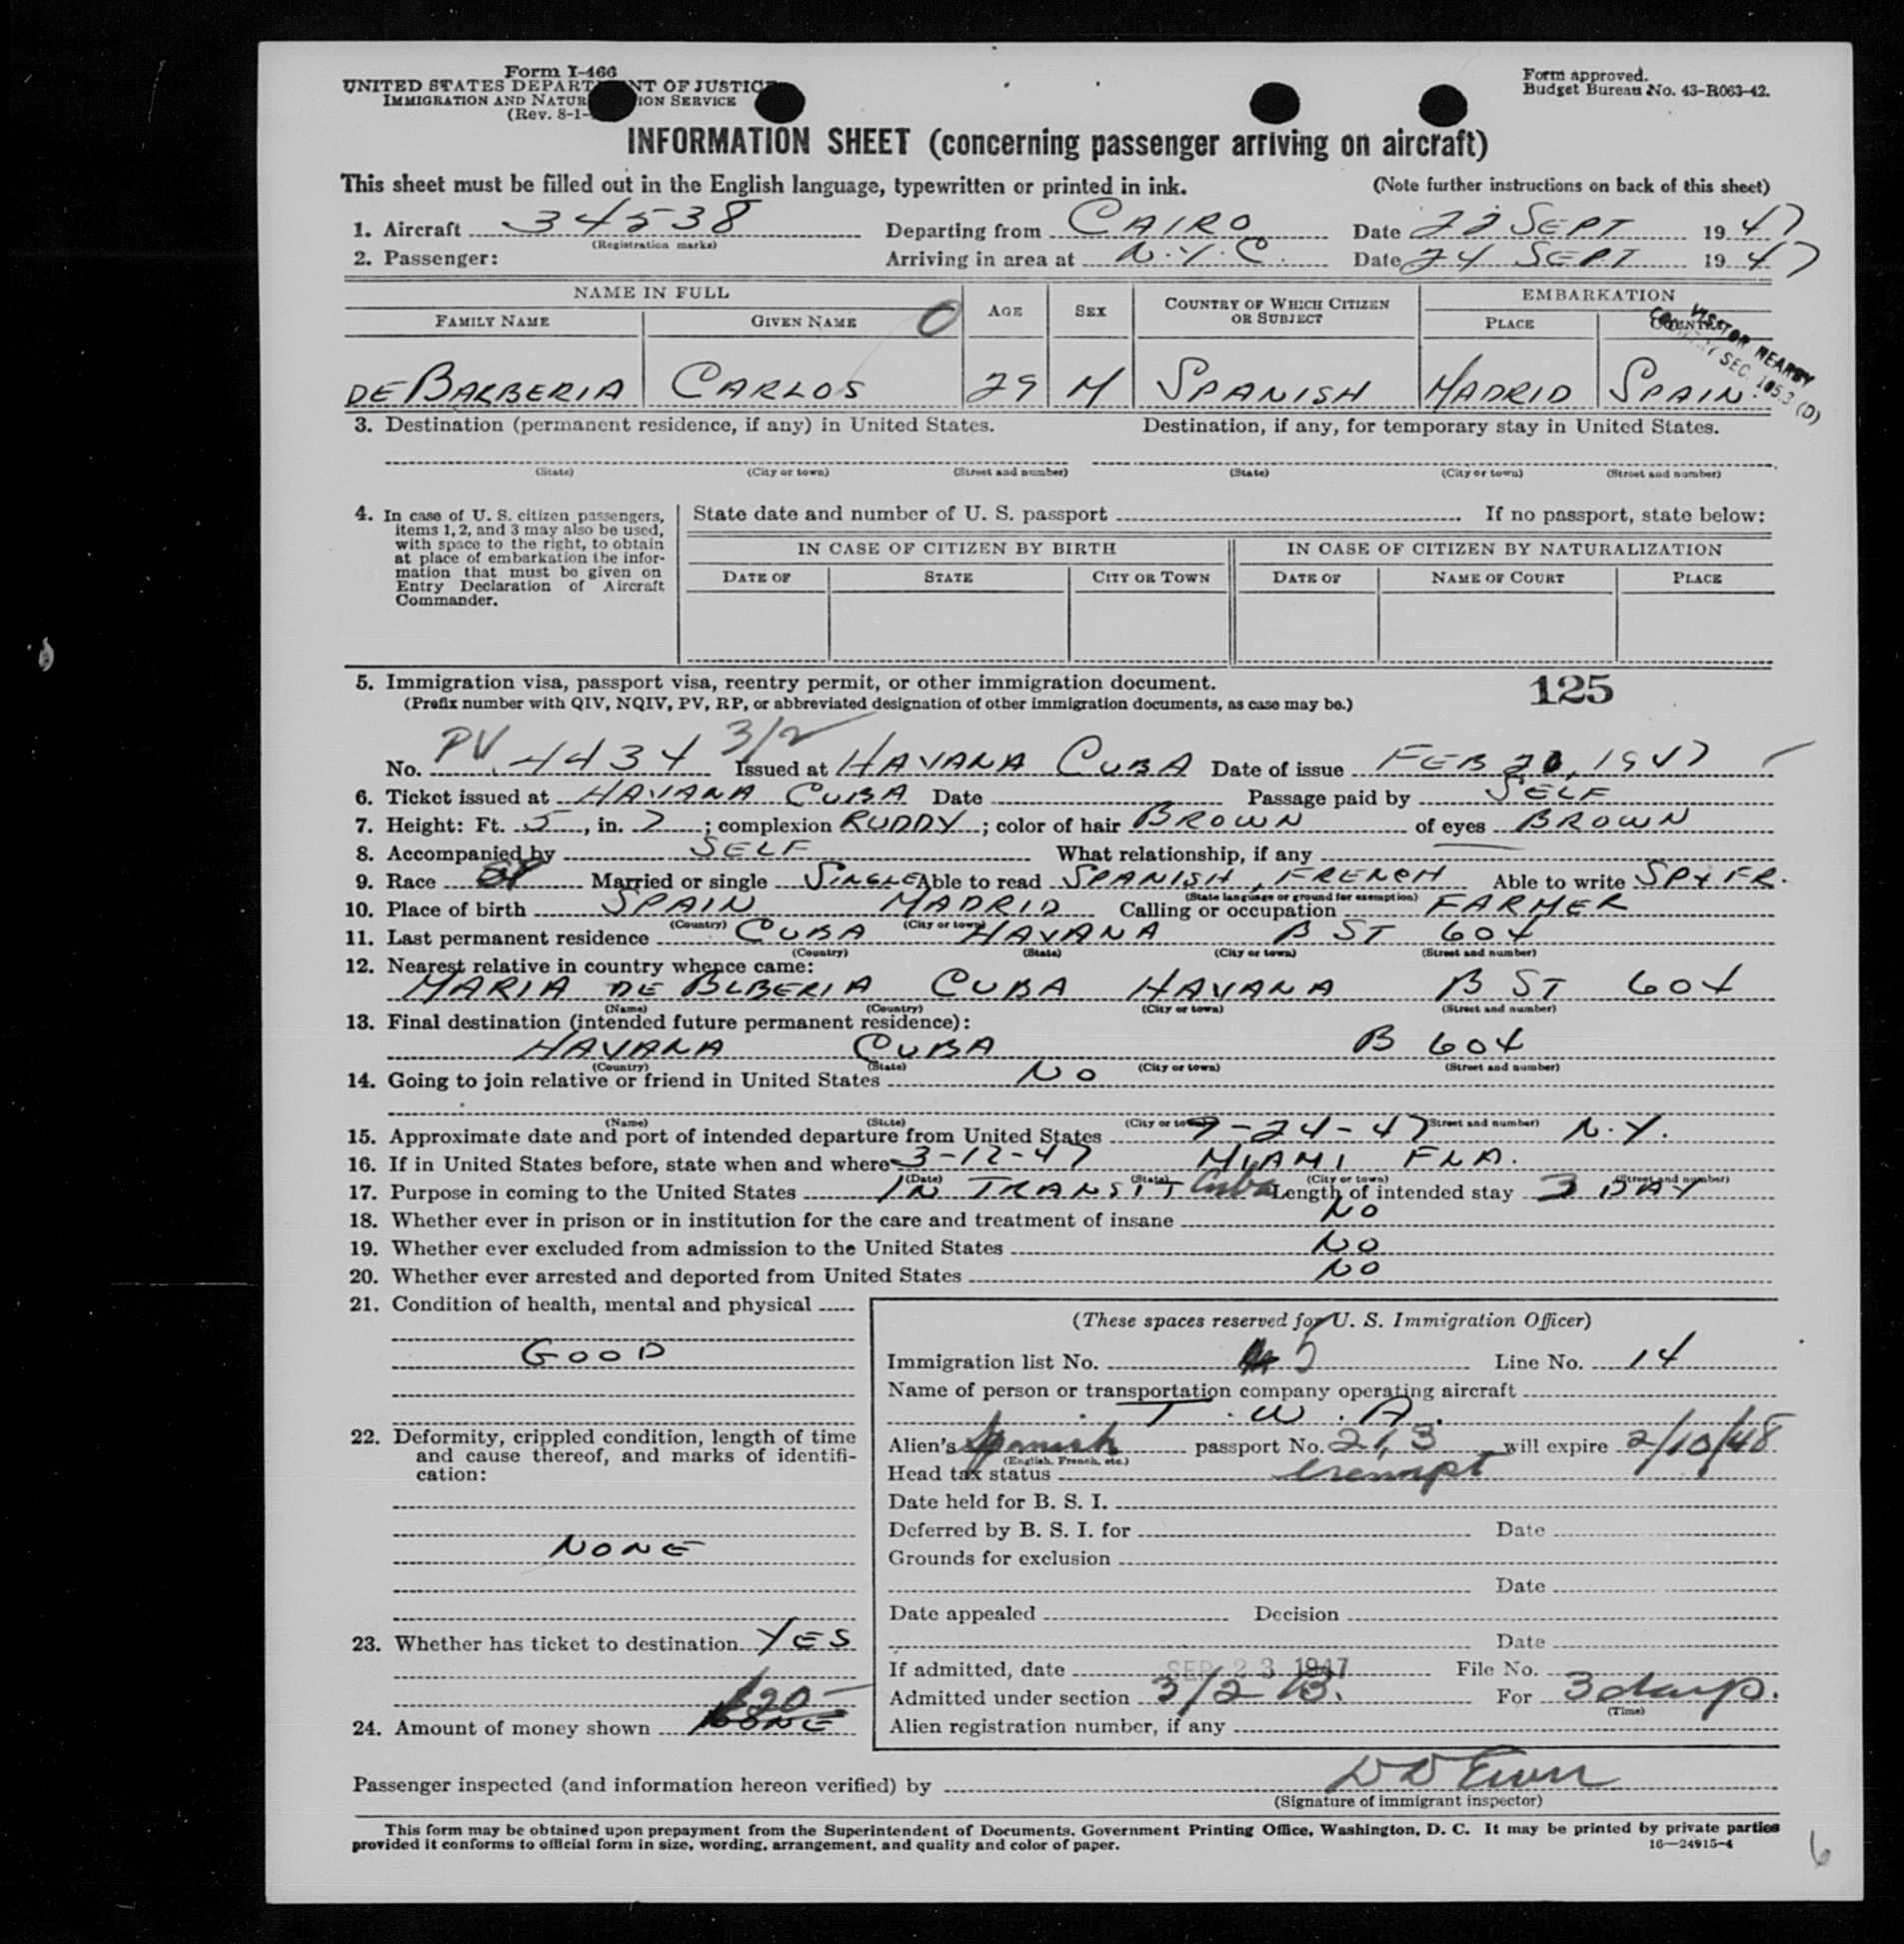 Form I-466
UNITED STATES DEPART NT OF JUSTIC
IMMIGRATION AND NATUR ION SERVICE
(Rev. 8-1-
Form approved.
Budget Bureau No. 43-R063-42.
INFORMATION SHEET (concerning passenger arriving on aircraft)
This sheet must be filled out in the English language, typewritten or printed in ink. (Note further instructions on back of this sheet)
1. Aircraft 34538 Departing from CAIRO Date 22 SEPT 1947
(Registration marks)
2. Passenger: Arriving in area at N.Y.C. Date 24 SEPT 1947
NAME IN FULL AGE SEX COUNTRY OF WHICH CITIZEN OR SUBJECT EMBARKATION
FAMILY NAME GIVEN NAME PLACE COUNTRY
VISITOR NEARBY
COUNTRY SEC. 165.3 (D)
DE BARBERIA CARLOS 29 M SPANISH MADRID SPAIN
3. Destination (permanent residence, if any) in United States. Destination, if any, for temporary stay in United States.
(State) (City or town) (Street and number) (State) (City or town) (Street and number)
4. In case of U. S. citizen passengers,
items 1, 2, and 3 may also be used,
with space to the right, to obtain
at place of embarkation the infor-
mation that must be given on
Entry Declaration of Aircraft
Commander.
State date and number of U. S. passport If no passport, state below:
IN CASE OF CITIZEN BY BIRTH IN CASE OF CITIZEN BY NATURALIZATION
DATE OF STATE CITY OR TOWN DATE OF NAME OF COURT PLACE
5. Immigration visa, passport visa, reentry permit, or other immigration document. 125
(Prefix number with QIV, NQIV, PV, RP, or abbreviated designation of other immigration documents, as case may be.)
3/2
No. PV 4434 Issued at HAVANA CUBA Date of issue FEB 20, 1947
6. Ticket issued at HAVANA CUBA Date Passage paid by SELF
7. Height: Ft. 5, in. 7; complexion RUDDY; color of hair BROWN of eyes BROWN
8. Accompanied by SELF What relationship, if any
9. Race Married or single SINGLE Able to read SPANISH, FRENCH Able to write SP & FR.
(State language or ground for exemption)
10. Place of birth SPAIN MADRID Calling or occupation FARMER
(Country) (City or town)
11. Last permanent residence CUBA HAVANA B ST 604
(Country) (State) (City or town) (Street and number)
12. Nearest relative in country whence came:
MARIA DE BLBERIA CUBA HAVANA B ST 604
(Name) (Country) (City or town) (Street and number)
13. Final destination (intended future permanent residence):
HAVANA CUBA B 604
(Country) (State) (City or town) (Street and number)
14. Going to join relative or friend in United States NO
(Name) (State) (City or town) (Street and number)
15. Approximate date and port of intended departure from United States 9-24-47 N.Y.
16. If in United States before, state when and where 3-12-47 MIAMI FLA.
(Date) (State) (City or town) (Street and number)
17. Purpose in coming to the United States IN TRANSIT Cuba Length of intended stay 3 DAY
18. Whether ever in prison or in institution for the care and treatment of insane NO
19. Whether ever excluded from admission to the United States NO
20. Whether ever arrested and deported from United States NO
21. Condition of health, mental and physical
GOOD
22. Deformity, crippled condition, length of time
and cause thereof, and marks of identifi-
cation:
NONE
23. Whether has ticket to destination YES
$20-
24. Amount of money shown NONE
(These spaces reserved for U. S. Immigration Officer)
Immigration list No. 5 Line No. 14
Name of person or transportation company operating aircraft
T.W.A.
Alien's Spanish passport No. 213 will expire 2/10/48
(English, French, etc.)
Head tax status exempt
Date held for B. S. I.
Deferred by B. S. I. for Date
Grounds for exclusion
Date
Date appealed Decision
Date
If admitted, date SEP 23 1947 File No.
Admitted under section 3/2 B. For 3 days.
(Time)
Alien registration number, if any
Passenger inspected (and information hereon verified) by
(Signature of immigrant inspector)
This form may be obtained upon prepayment from the Superintendent of Documents, Government Printing Office, Washington, D. C. It may be printed by private parties
provided it conforms to official form in size, wording, arrangement, and quality and color of paper. 16—24915-4
6